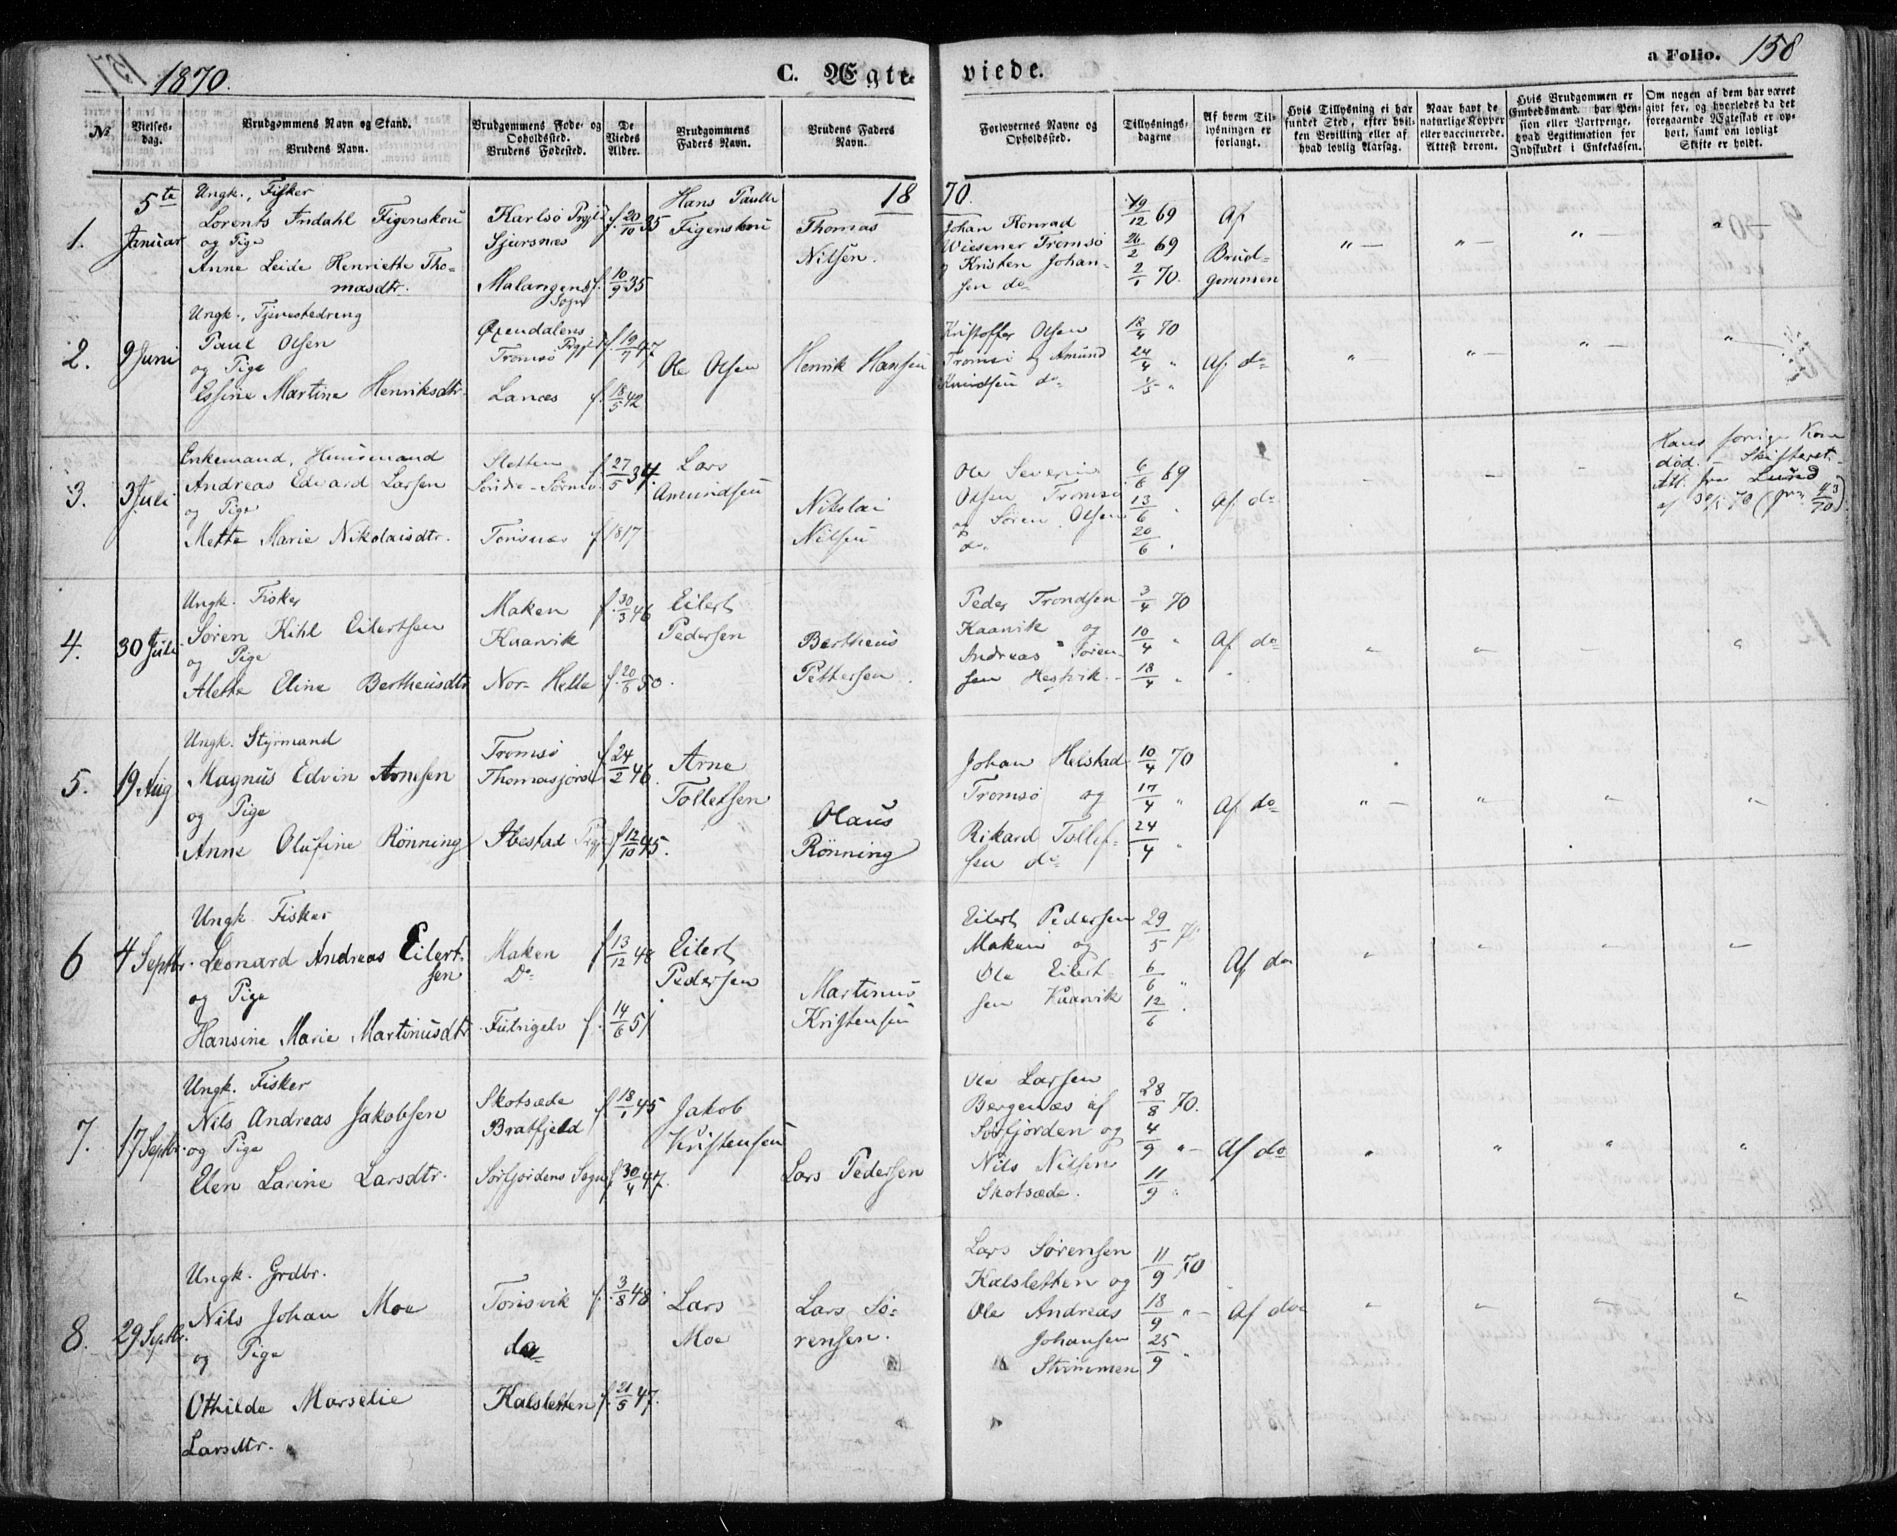 1870.
C. Ægte
viede.
a Folio. 158
No.
Vielses-
dag.
Brudgommens Navn og Stand.
Brudens Navn.
Brudgommens Føde- og
Opholdssted.
Brudens Fødested.
De
Viedes
Alder.
Brudgommens
Faders Navn.
Brudens Faders
Navn.
Forlovernes Navne og
Opholdssted.
Tillysnings-
dagene
Af hvem Til-
lysningen er
forlangt.
Hvis Tillysning ei har
fundet Sted, efter hvil-
ken Bevilling eller af
hvad lovlig Aarsag.
Naar havt de
naturlige Kopper
eller vaccinerede.
Attest derom.
Hvis Brudgommen er
Embedsmand, har Pen-
sion eller Vartpenge,
hvad Legitimation for
Indskudet i Enkekassen.
Om nogen af dem har været
givt før, og hvorledes da det
foregaaende Ægteskab er op-
hørt, samt om lovligt
Skifte er holdt.
18
70.
1.
5te
Januar
Ungk., Fisker
Lorents Andahl Figenskou
og Pige
Anne Leide Henriette Tho-
masdtr.
Karlsø Prgjld
Sjursnæs
Malangens
Sogn
f. 20/10 35
f. 10/9 35
Hans Paul
Figenskou
Thomas
Nilsen.
Johan Konrad
Wiesener Tromsø
og Kristen Johan-
sen do
19/12 69
26/2 69
2/1 70.
Af
Brud-
gommen
2.
9 Juni
Ungk., Tjenestedreng
Paul Olsen
og Pige
Essine Martine Henriksdtr.
Øxendalens
Prgjld
Tromsø
Lanæs
f. 19/7 47
f. 18/5 42
Ole Olsen
Henrik Hansen
Kristoffer Olsen
Tromsø og Amund
Knudsen do
18/4 70
24/4 "
1/5 "
Af do
3.
3 Juli
Enkemand, Huusmand
Andreas Edvard Larsen
og Pige
Mette Marie Nikolaisdtr.
Sletten
Tonsnæs
f. 27/5 34
f. 1817
Lars
Amundsen
Nikolai
Nilsen
Ole Severin
Olsen Tromsø
og Søren Olsen
do
6/6 69
13/6 "
20/6 "
Af do
Hans forrige Kone
død. - Skifteret.
Att. fra Lund
4.
30 Juli
Ungk. Fisker
Søren Kihl Eilertsen
og Pige
Alette Eline Bertheusdtr
Maken
Kaarvik
Nor-Helle
f. 30/3 46
f. 20/6 50.
Eilert
Pedersen
Bertheus
Pettersen
Peder Trondsen
Kaarvik og
Andreas Søren-
sen Hestvik.
3/4 70
10/4 "
18/4 "
Af do
5.
19 Aug
Ungk. Styrmand
Magnus Edvin Arnesen
og Pige
Anne Olufine Rønning
Tromsø
Thomasjord
Ibestad Prgj
f. 24/2 46.
f. 12/10 45.
Arne
Tollefsen
Olaus
Rønning
Johan Helstad
Tromsø og
Rikard Tollef-
sen do
10/4 70
17/4 "
24/4 "
Af do
6
4 Septbr.
Ungk. Fisker
Leonard Andreas Eilert-
sen
og Pige
Hansine Marie Martinusdtr
Maken
Do
Futrigelv
f. 13/12 48
f. 14/6 51
Eilert
Pedersen
Martinus
Kristensen
Eilert Pedersen
Maken og
Ole Eilert-
sen Kaarvik
29/5 70
6/6
12/6 "
Af do
7.
17 Septbr.
Ungk. Fisker
Nils Andreas Jakobsen
og Pige
Elen Larine Larsdtr.
Skotsæde
Bratfjeld
Sørfjordens Sogn
f. 18/1 45
f. 30/4 47.
Jakob
Kristensen
Lars Pedersen
Ole Larsen
Bergenæs af
Sørfjorden og
Nils Nilsen
Skotsæde.
28/8 70.
4/9 "
11/9 "
Af do
8.
29 Septbr.
Ungk. Grdbr.
Nils Johan Moe
og Pige
Othilde Marselie
Larsdtr.
Tonsvik
do
Kalsletten
f. 3/8 48.
f. 21/5 47.
Lars
Moe
Lars Sø-
rensen.
Lars Sørensen
Kalsletten og
Ole Andreas
Johansen
Strimmen
11/9 70
18/9 "
25/9 "
Af do